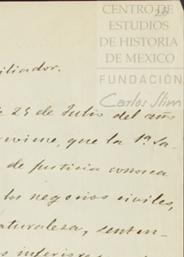 CENTRO DE
ESTUDIOS
DE HISTORIA
DE MEXICO
FUNDACIÓN
Carlos Slim
iliador.
e 25 de Julio del año
reviene, que la 1ª Sa-
de justicia conosca
los negocios civiles,
aturaleza, senten-